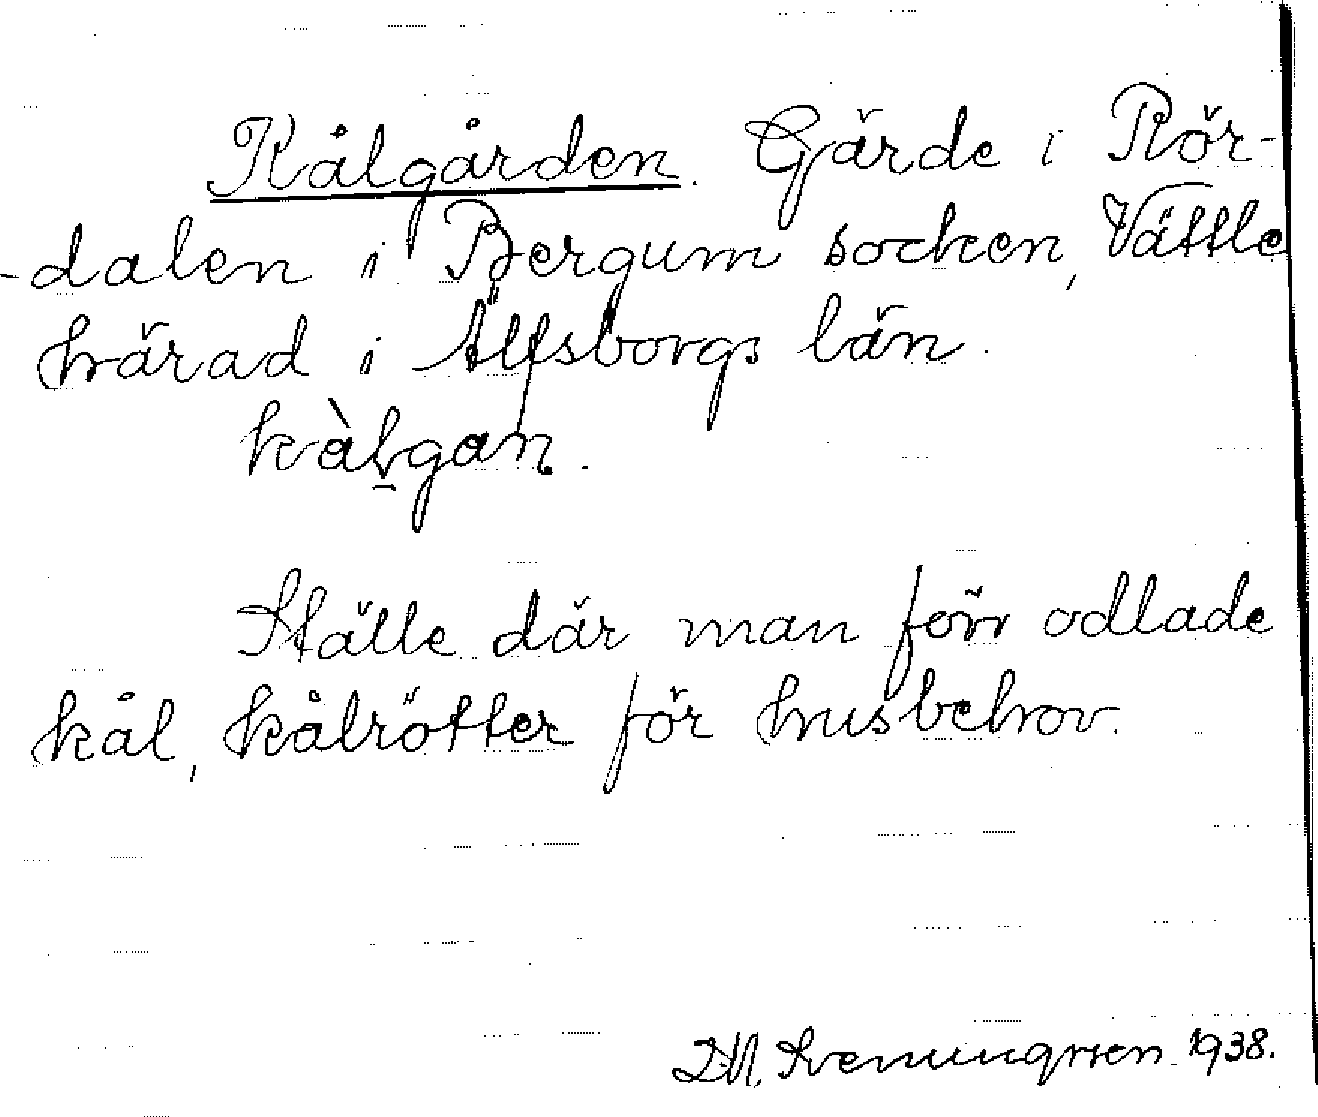 Kålgården. Gärde i Rör-
-dalen i Bergum socken, Vättle
härad i Älfsborgs län.
kàḷgan.
Ställe där man förr odlade
kål, kålrötter för husbehov.
Svenungsson 1938.